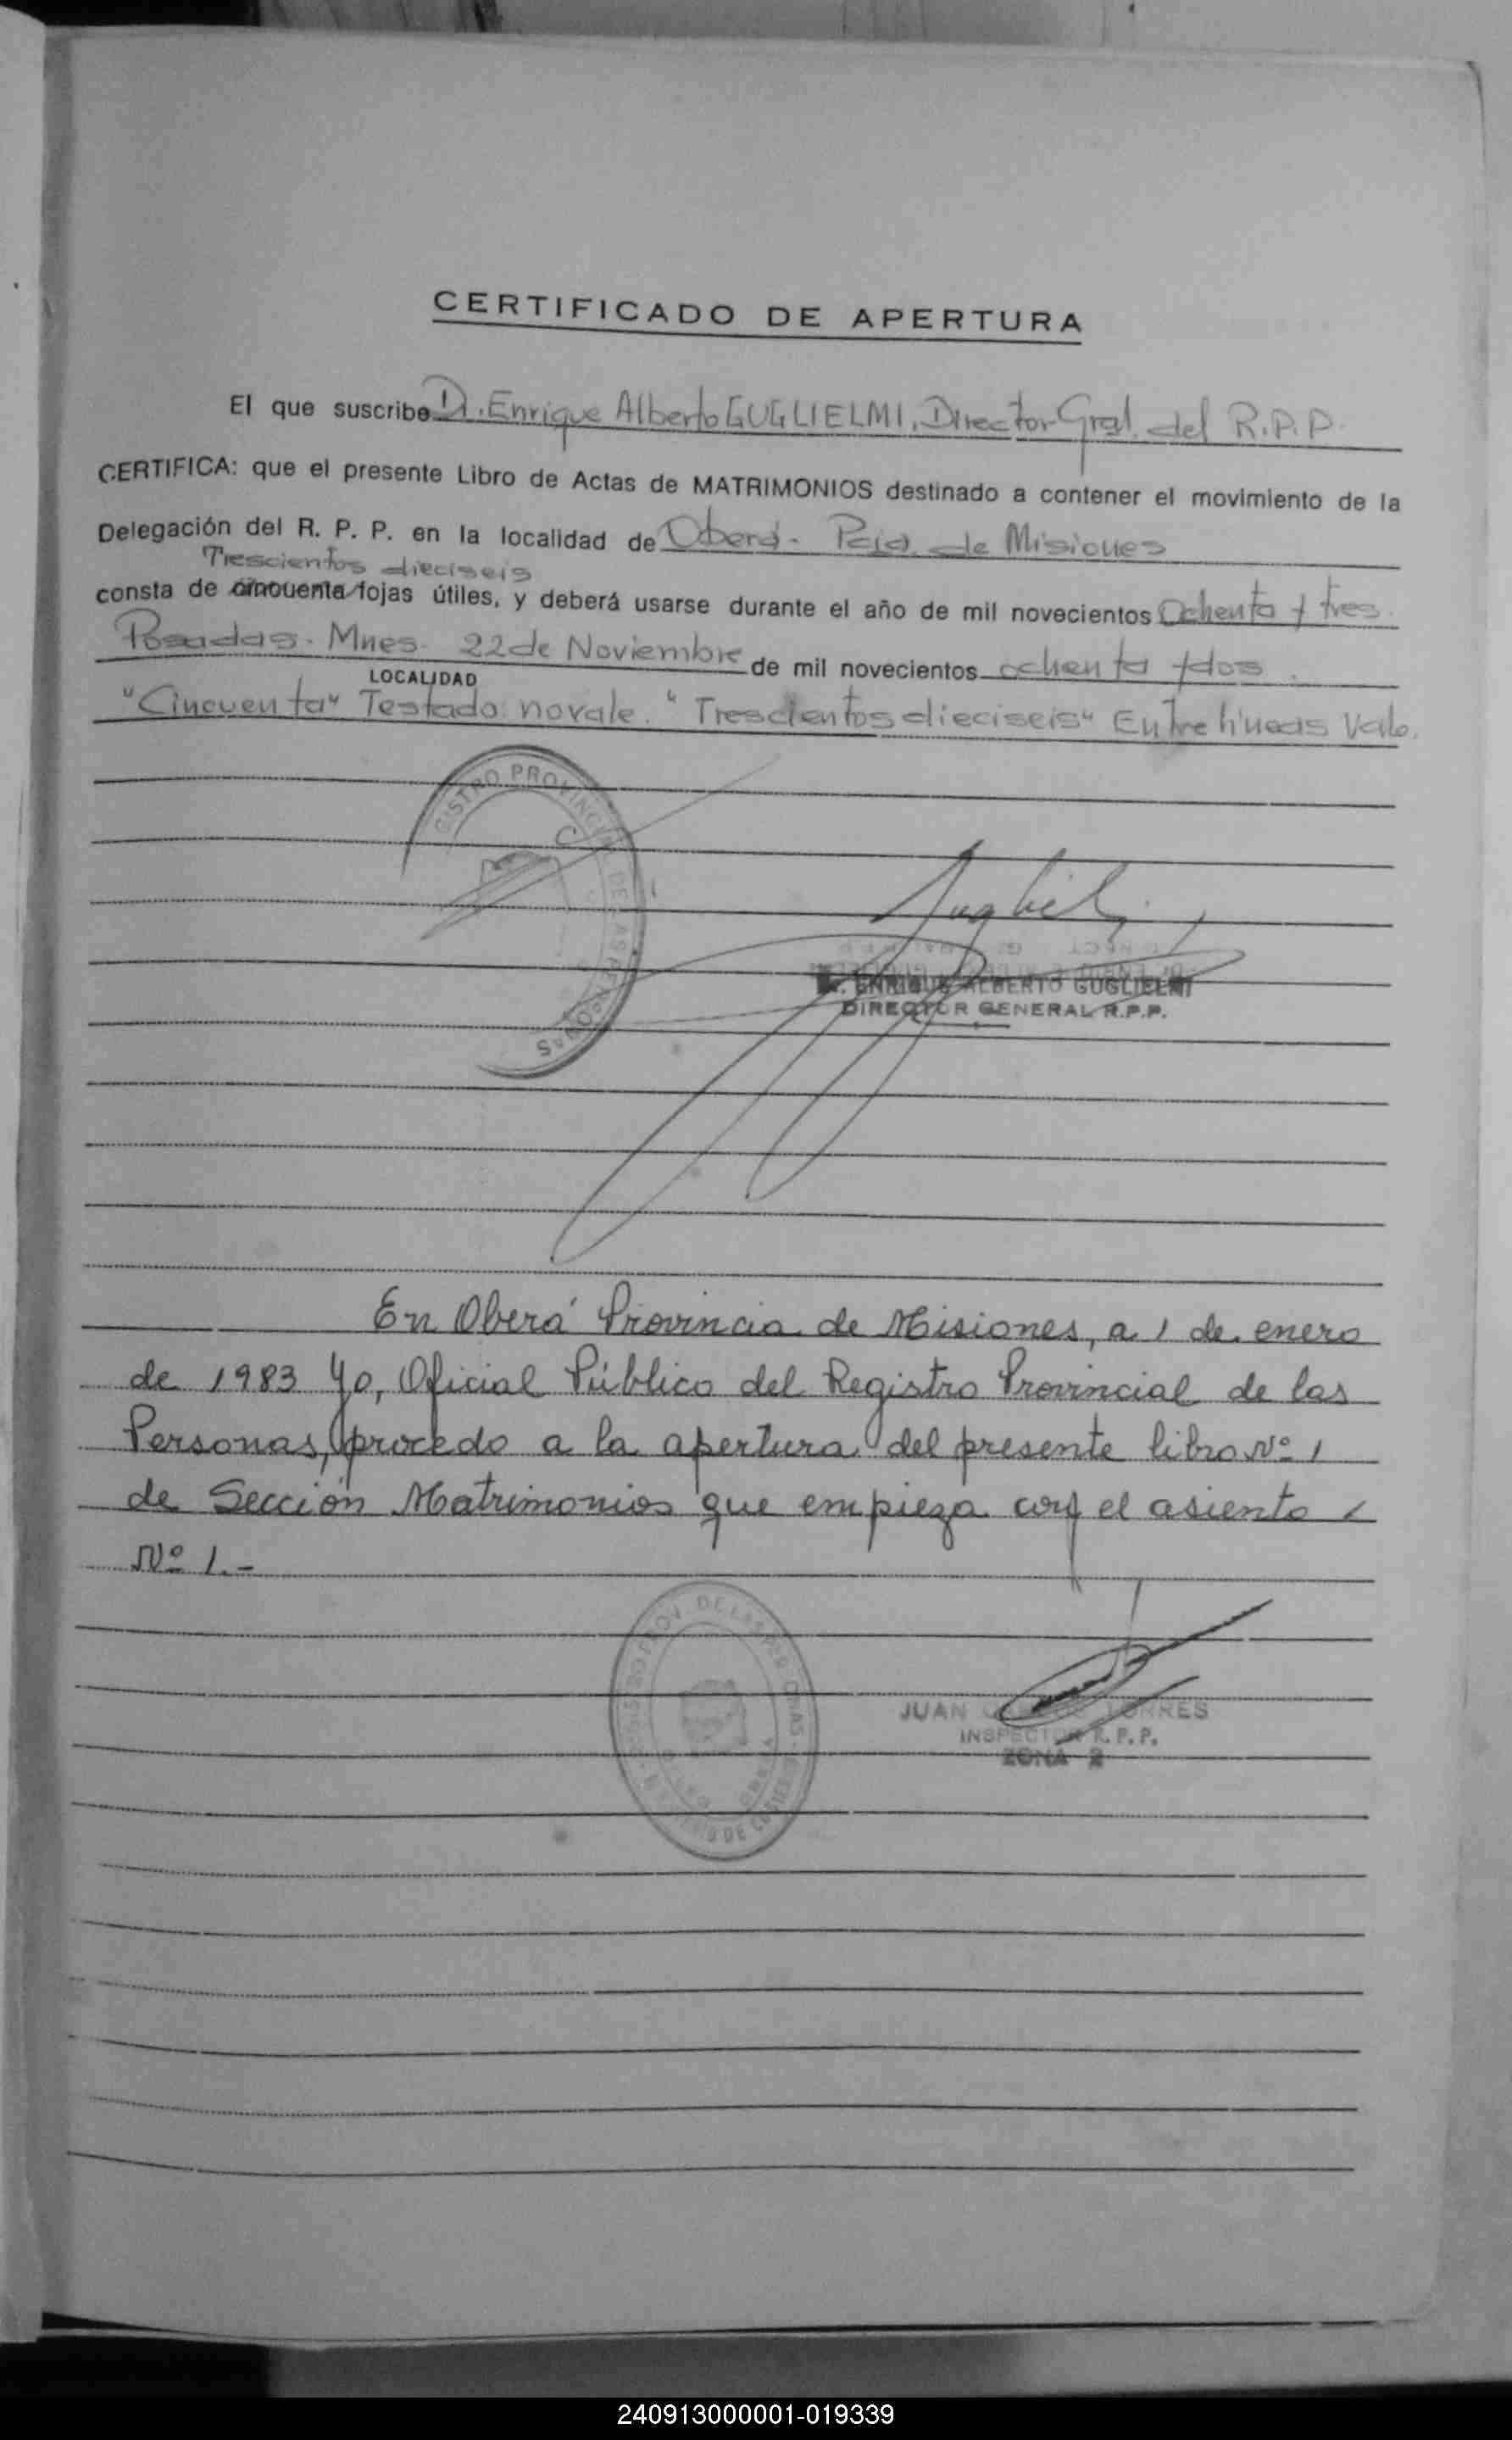 CERTIFICADO DE APERTURA
El que suscribe D. Enrique Alberto GUGLIELMI, Director Gral. del R.P.P.
CERTIFICA: que el presente Libro de Actas de MATRIMONIOS destinado a contener el movimiento de la
Delegación del R. P. P. en la localidad de Oberá- Pcia. de Misiones
Trescientos dieciseis
consta de cincuenta fojas útiles, y deberá usarse durante el año de mil novecientos Ochenta y tres
Posadas. Mnes. 22 de Noviembre de mil novecientos ochenta y dos.
LOCALIDAD
"Cincuenta" Testado: no vale. "Trescientos dieciseis" Entre líneas Vale.
GISTRO PROVINCIAL DE LAS PERSONAS
ENRIQUE ALBERTO GUGLIELMI
DIRECTOR GENERAL R.P.P.
En Oberá Provincia de Misiones, a 1 de enero
de 1983 Yo, Oficial Público del Registro Provincial de las
Personas, procedo a la apertura del presente libro Nº 1
de Sección Matrimonios que empieza con el asiento
Nº 1.-
DE LAS PERSONAS
JUAN TORRES
INSPECTOR R.P.P.
ZONA 2
240913000001-019339